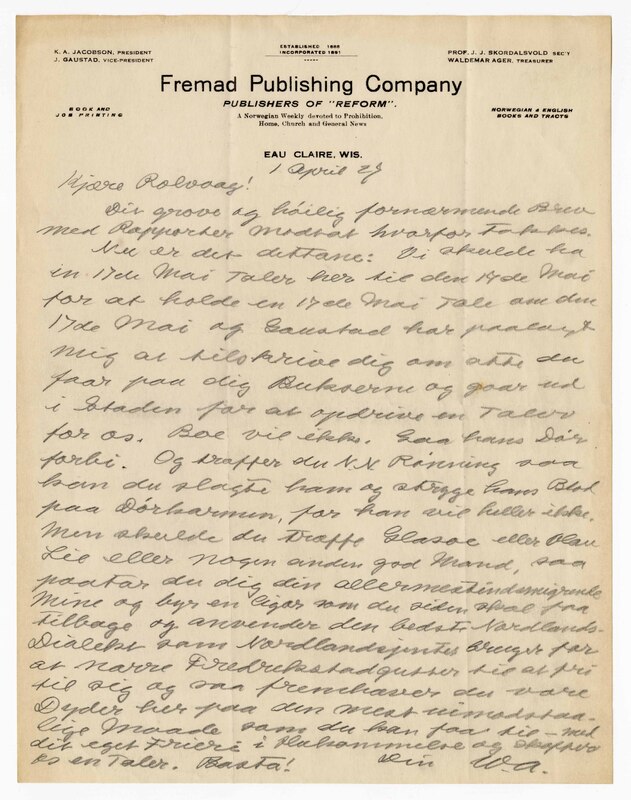 K. A. JACOBSON, PRESIDENT
J. GAUSTAD, VICE-PRESIDENT
ESTABLISHED 1888
INCORPORATED 1891
PROF. J. J. SKORDALSVOLD SEC'Y
WALDEMAR AGER, TREASURER
Fremad Publishing Company
PUBLISHERS OF "REFORM".
BOOK AND
JOB PRINTING
A Norwegian Weekly devoted to Prohibition,
Home, Church and General News
NORWEGIAN & ENGLISH
BOOKS AND TRACTS
EAU CLAIRE, WIS.
1 April 27
Kjære Rolvaag!
Dit grove og höilig fornærmende Brev
med Rapporter modtat hvorfor Takkes.
Nu er det dettane: Vi skulde ha
en 17de Mai Taler her til den 17de Mai
for at holde en 17de Mai Tale om den
17de Mai og Gaustad har paalagt
mig at tilskrive dig om atte du
faar paa dig Bukserne og gaar ud
i Staden for at opdrive en Taler
for os. Boe vil ikke. Gaa hans Dör
forbi. Og træffer du N.N. Rönning saa
kan du slagte ham og stryge hans Blod
paa Dörkarmen, for han vil heller ikke.
Men skulde du træffe Glasoe eller Olav
Lie eller nogen anden god Mand, saa
paatar du dig din allermestindsmigrende
Mine og byr en Cigar som du siden skal faa
tilbage og anvender den bedste Nordlands-
Dialekt som Nordlandsjenter bruger for
at narre Fredrikstadgutter til at fri
til sig og saa fremhæver du vore
Dyder her paa den mest uimodstaa-
lige Maade som du kan faa til – med
dit eget Frieri i Hukommelse og skaffer
os en Taler. Basta!
Din W.A.